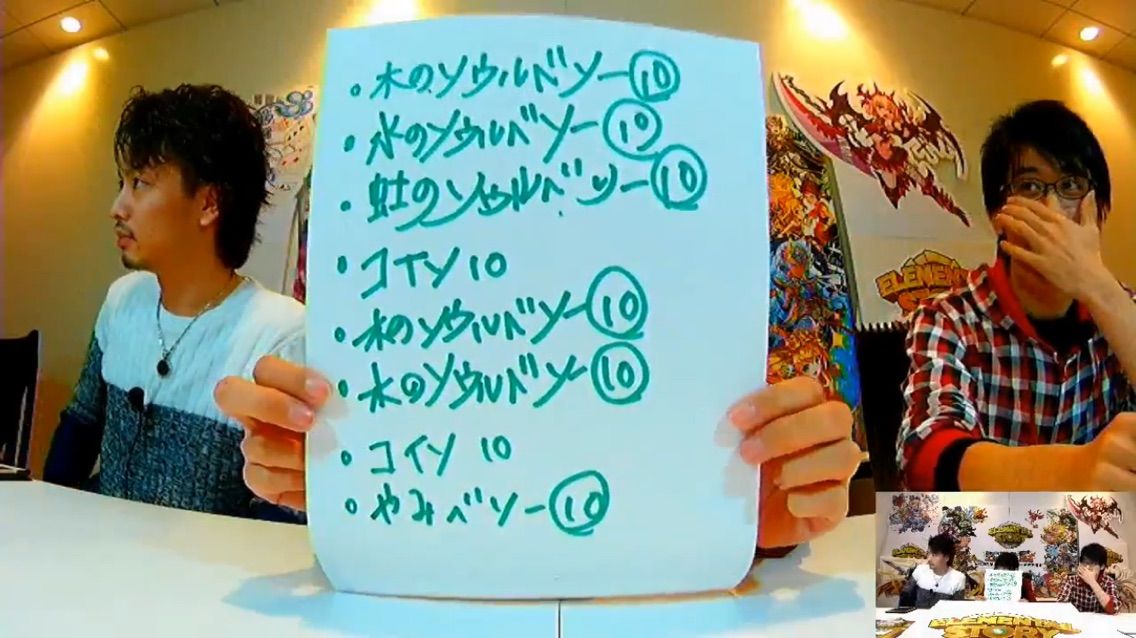 ・木のソウルベソー⑩
・水のソウルベソー⑩
・虹のソウルベソー⑩
・コイン10
・水のソウルベソー⑩
・水のソウルベソー⑩
・コイン 10
・やみベソー⑩
ELEMENTAL
STORY
ELEMENTAL
STORY